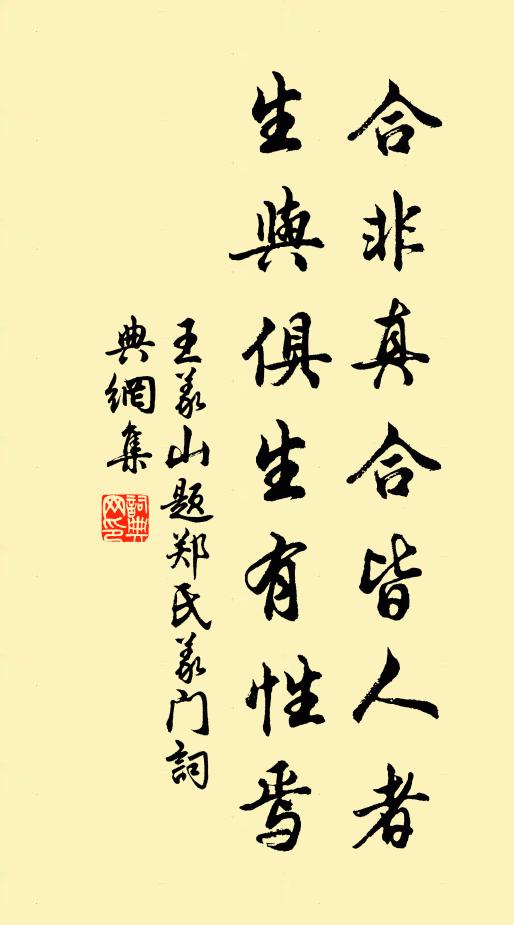 合非真合皆人者
生與俱生有性焉
王义山题郑氏义门詞
典網集
詞典网印